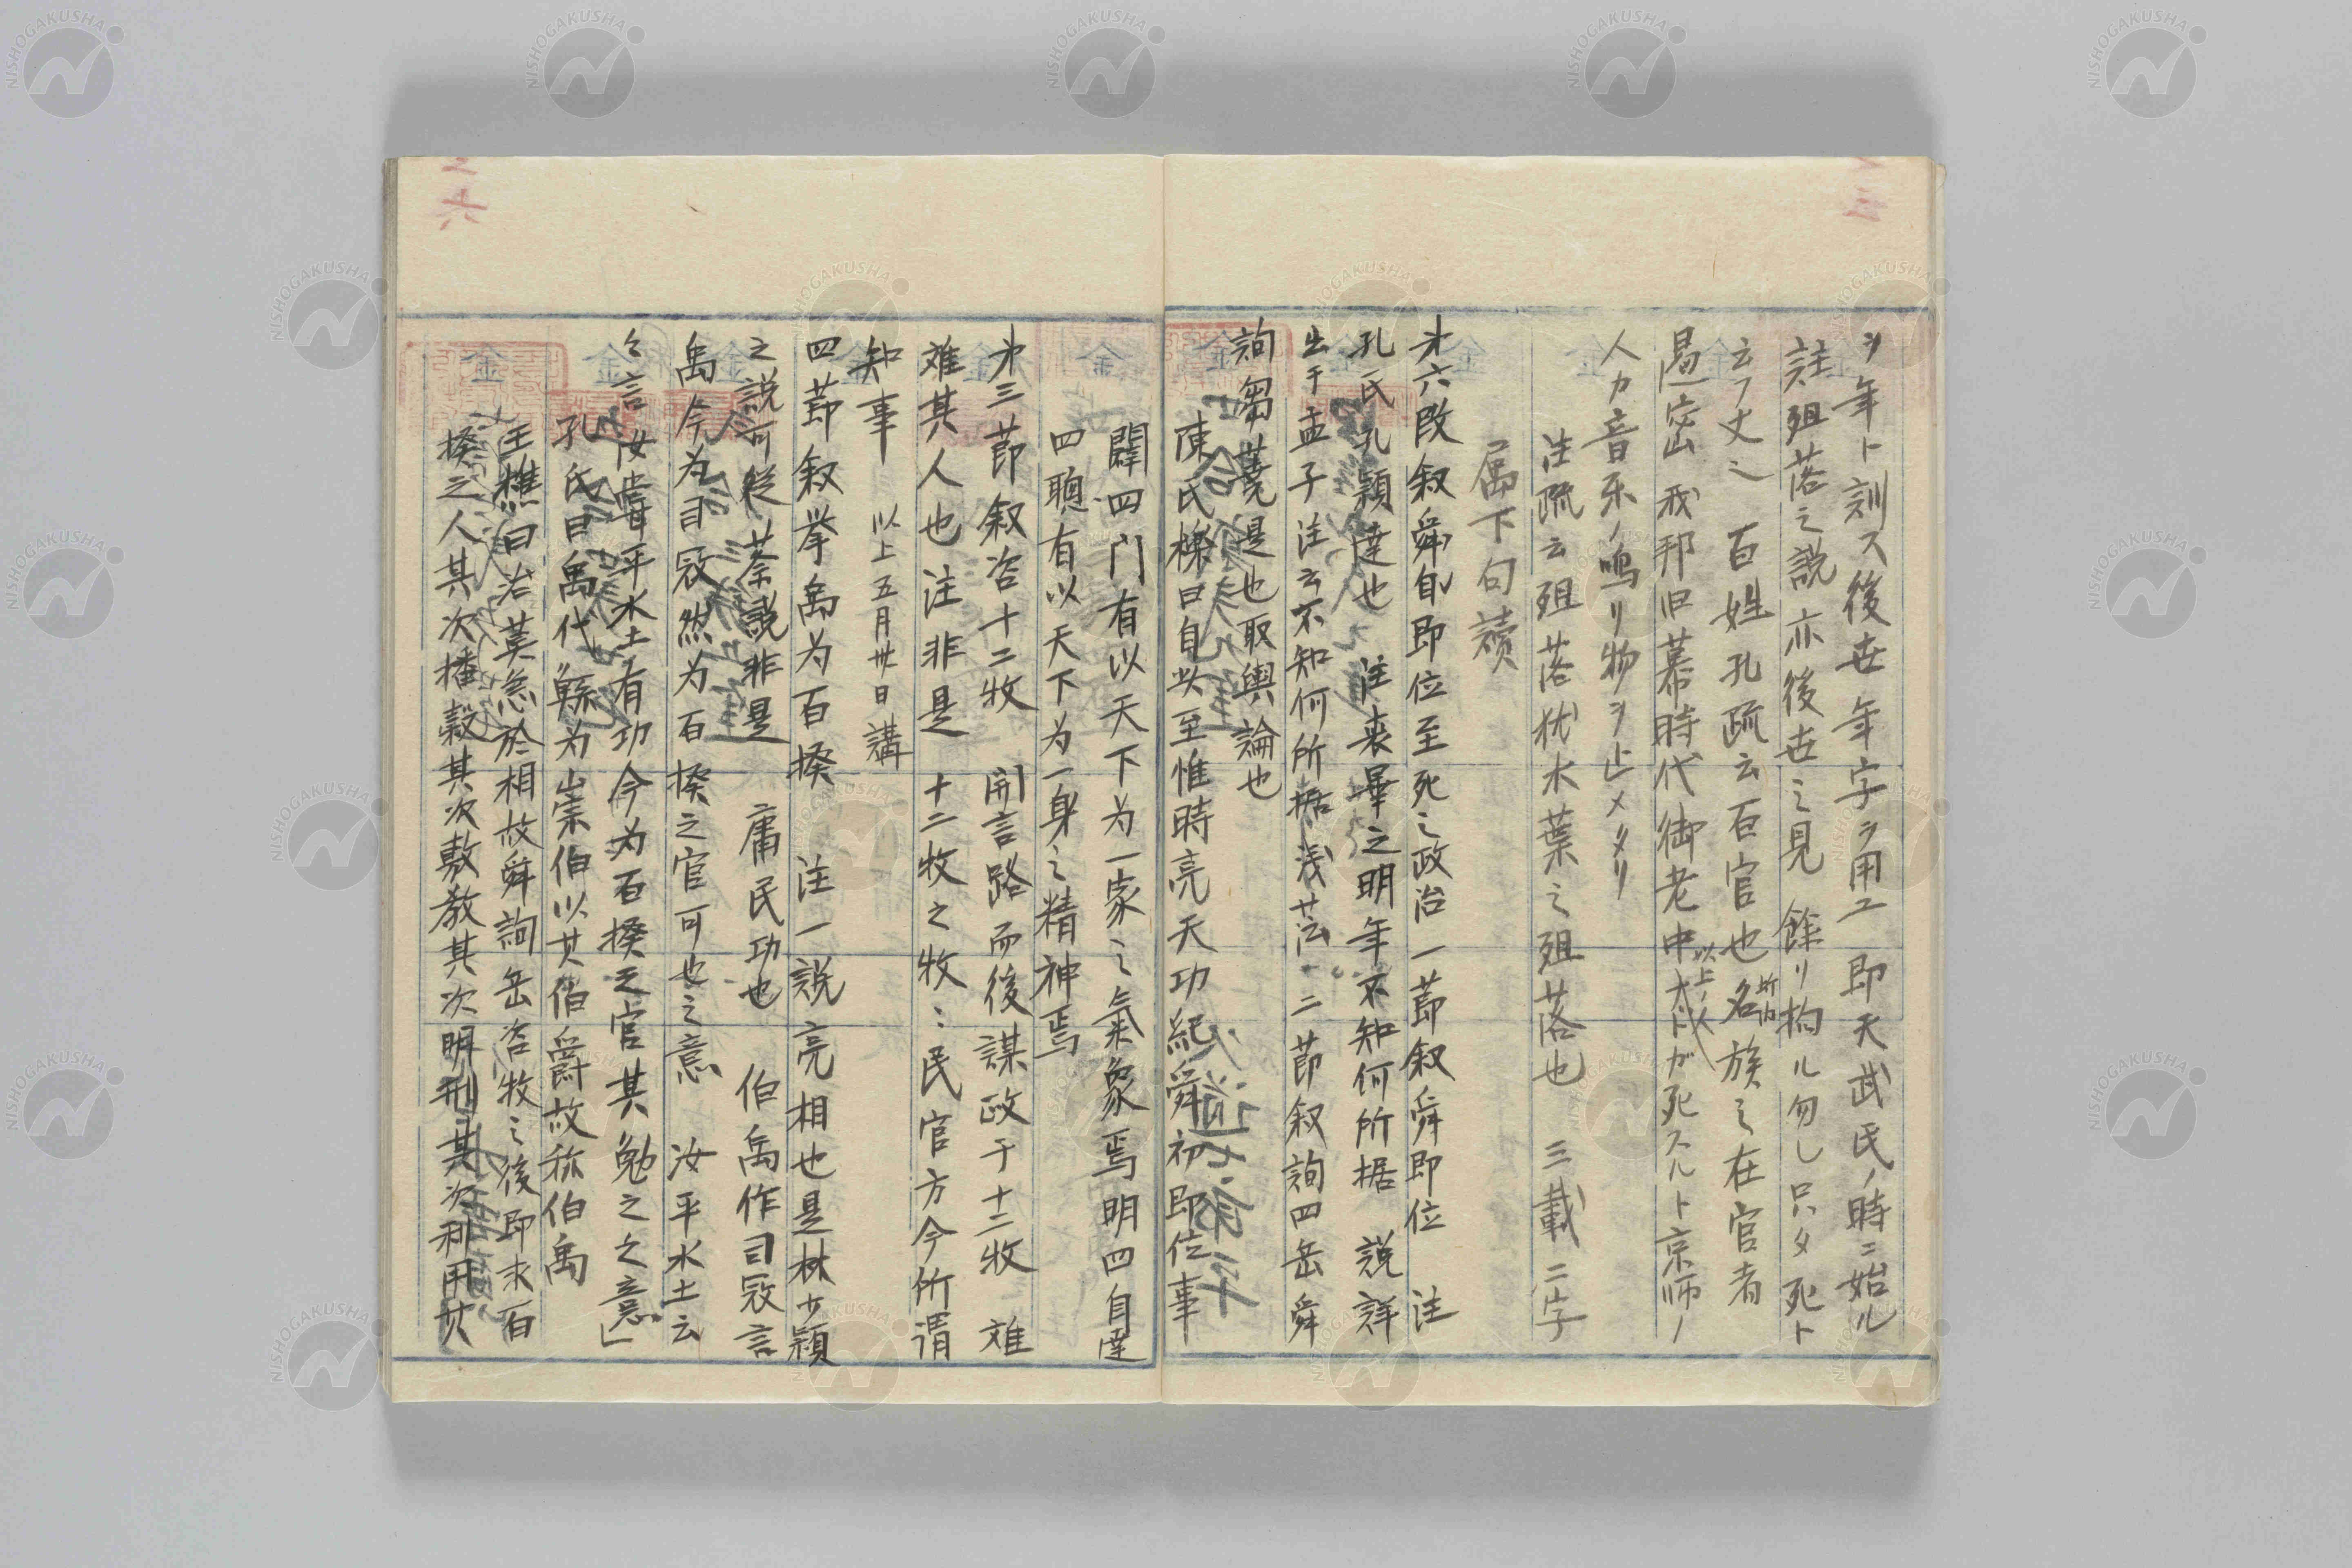 ヲ年ト訓ス後世年字ヲ用エ即天武氏ノ時ニ始ル
註殂落之説亦後世之見 餘リ拘ル勿し只タ死ト
云フ丈之 百姓孔疏云百官也所謂名族之在官者
遏密我邦旧幕時代御老中以上ノ人ガ死スルト京師ノ
人カ音乐ノ鳴リ物ヲ止メタリ
注疏云殂落犹木葉之殂落也 三載二字
属下句讀
才六段叙舜自即位至死之政治一莭叙舜即位 注
孔氏孔穎達也 注来畢之明年不知何所据 説詳
出于孟子注云不知何所据浅 二莭叙詢四岳舜
詢蒭蕘是也取輿論也
陳氏櫟曰自此至惟時亮天功紀舜初即位事
闢四門有以天下为一家之氣象焉明四目達
四聰有以天下为一身之精神焉
才三莭叙咨十二牧 開言路而後謀政于十二牧 难
难其人也注非是 十二牧之牧ミ民官方今所谓
知事 以上五月卅日講
四莭叙挙禹为百揆 注一説亮相也是林少穎
之説可従蔡説非是 庸民功也 伯禹作司冦言
禹今为司冦然为百揆之官可也之意 汝平水土云
々言汝嘗平水土有功今为百揆之官其勉之之意」
孔氏曰禹代鯀为崇伯以其伯爵故称伯禹
王樵曰治莫急於相故舜詢岳咨牧之後即求百
揆之人其次播穀其次敷教其次明刑其次利用其
三六
金
NISHOGAKUSHA